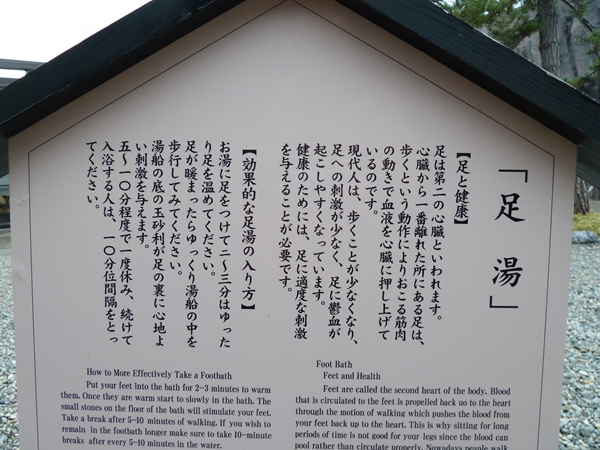 「足湯」
【足と健康】
足は第二の心臓といわれます。
心臓から一番離れた所にある足は、
歩くという動作によりおこる筋肉
の動きで血液を心臓に押し上げて
いるのです。
現代人は、歩くことが少なくなり、
足への刺激が少なく、足に鬱血が
起こしやすくなっています。
健康のためには、足に適度な刺激
を与えることが必要です。
【効果的な足湯の入り方】
お湯に足をつけて二〜三分はゆった
り足を温めてください。
足が暖まったらゆっくり湯船の中を
歩行してみてください。
湯船の底の玉砂利が足の裏に心地よ
い刺激を与えます。
五〜一〇分程度で一度休み、続けて
入浴する人は、一〇分位間隔をとっ
てください。
Foot Bath
Feet and Health
Feet are called the second heart of the body. Blood
that is circulated to the feet is propelled back up to the heart
through the motion of walking which pushes the blood from
your feet back up to the heart. This is why sitting for long
periods of time is not good for your legs since the blood can
pool rather than circulate properly. Nowadays people walk
How to More Effectively Take a Footbath
Put your feet into the bath for 2-3 minutes to warm
them. Once they are warm start to slowly in the bath. The
small stones on the floor of the bath will stimulate your feet.
Take a break after 5-10 minutes of walking. If you wish to
remain in the footbath longer make sure to take 10-minute
breaks after every 5-10 minutes in the water.